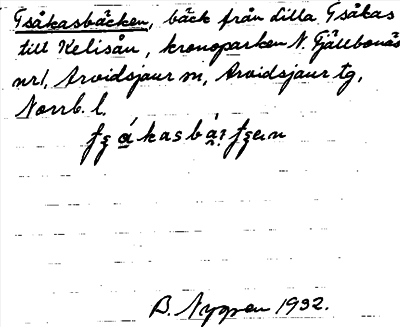 Tsåkasbäcken, bäck från Lilla Tsåkas
till Kelisån, kronoparken N. Fjällbonäs
nr 1, Arvidsjaur sn, Arvidsjaur tg,
Norrb. l.
B. Nygren 1932.